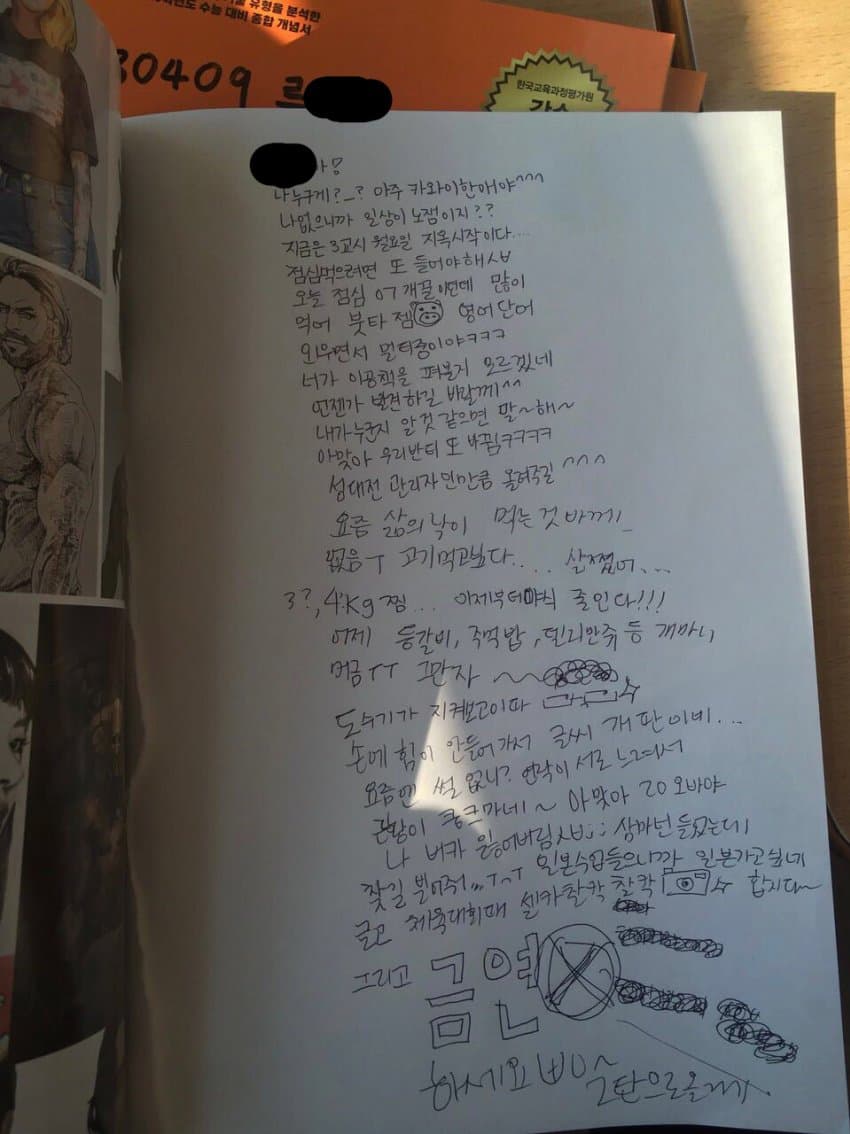 유형을 분석한
수능 대비 종합 개념서
30409
한국교육과정평가원
나 누구게?_? 아주 카와이한애야^^^
나없으니까 일상이 노잼이지??
지금은 3교시 월요일 지옥시작이다....
점심먹으려면 또 들어야해
오늘 점심 개꿀이던데 많이
먹어 붓타 젬 영어단어
외우면서 멀티중이야ㅋㅋㅋ
너가 이공책을 펴볼지 모르겠네
언젠가 발견하길 바랄께^^
내가누군지 알것 같으면 말~해~
아맞아 우리반티 또 바뀜ㅋㅋㅋㅋ
성대전 관리자인만큼 올려주길 ^^^
요즘 삶의 낙이 먹는 것 바께
없음ㅜ 고기먹고싶다.... 살쪘어...
3?,4kg찜... 이제부터야식 줄인다!!!
어제 등갈비, 주먹밥, 델리만쥬 등 개마니
머금ㅜㅜ 그만자 ~~
도수기가 지켜보고이따
손에 힘이 안들어가서 글씨 개판이네...
요즘엔 썰 없니? 연락이 서로 느려서
나 버카 잃어버림
찾길 빌어줘 ,,,ㅜ^ㅜ 일본수업들으니깜 일본가고싶네
글고 체육대회때 셀카찰칵 찰칵 합지다~
그리고 금연
하세요 ㅃ